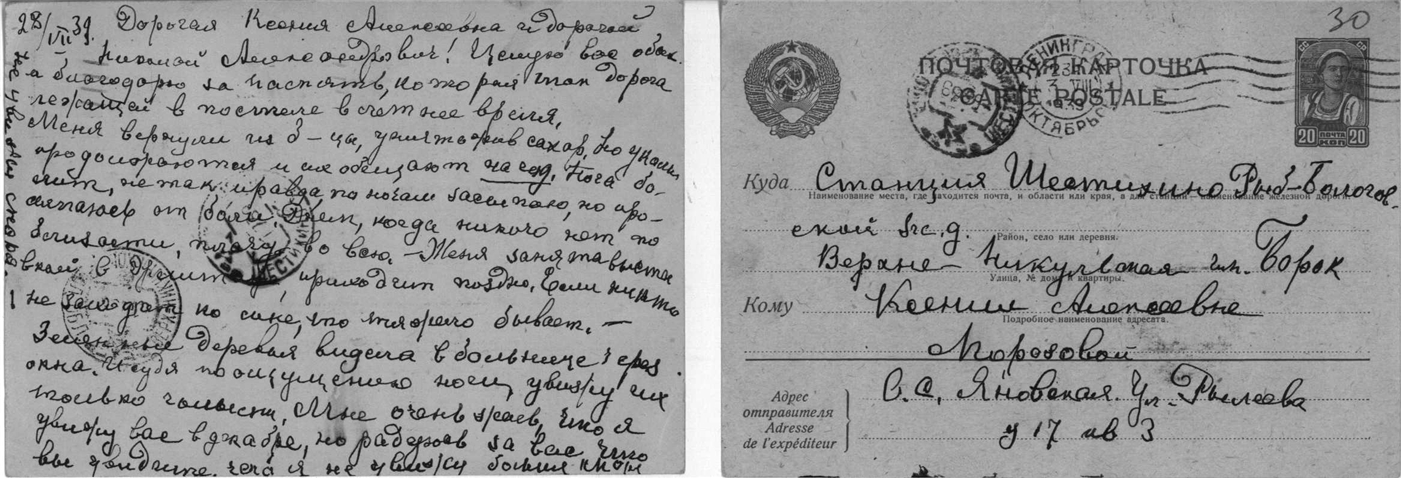 28/VII 39. Дорогая Ксения Алексеевна и дорогой
Николай Александрович! Целую вас обоих
и благодарю за память, которая так дорога
лежащей в постели в летнее время.
Меня вернули из б-цы, уничтожив сахар, но укалы
продолжаются и их обещают на год. Нога бо-
лит, не так правда, по ночам засыпаю, но про-
от боли. Днем, когда никого нет по
близости, плачу во всю. Женя занята
приходит поздно. Если никто
не заходит ко мне, что тяжело бывает. —
Зеленые деревья видела в больнице через
окна. Судя по ощущению ноги, увижу их
только голыми. Мне очень жаль, что я
увижу вас в декабре, но радуюсь за вас, что
вы увидите, чего я не увижу
не увижу снова. —
30
ПОЧТОВАЯ КАРТОЧКА
CARTE POSTALE
СС СР
20 ПОЧТА КОП 20
ЛЕНИНГРАД
23
VII
1939
ОКТЯБРЬСК
Куда Станция Шестихино Рыб-Бологов-
Наименование места, где находится почта, и области или края, а для станции — наименование железной дороги.
ской ж.д.
Район, село или деревня.
Верхне-Никульская п. Борок
Улица, № дома и квартиры.
Кому Ксении Алексеевне
Подробное наименование адресата.
Морозовой
Адрес отправителя
Adresse de l'expéditeur
О.С. Яновская. Ул. Рылеева
д 17 кв 3